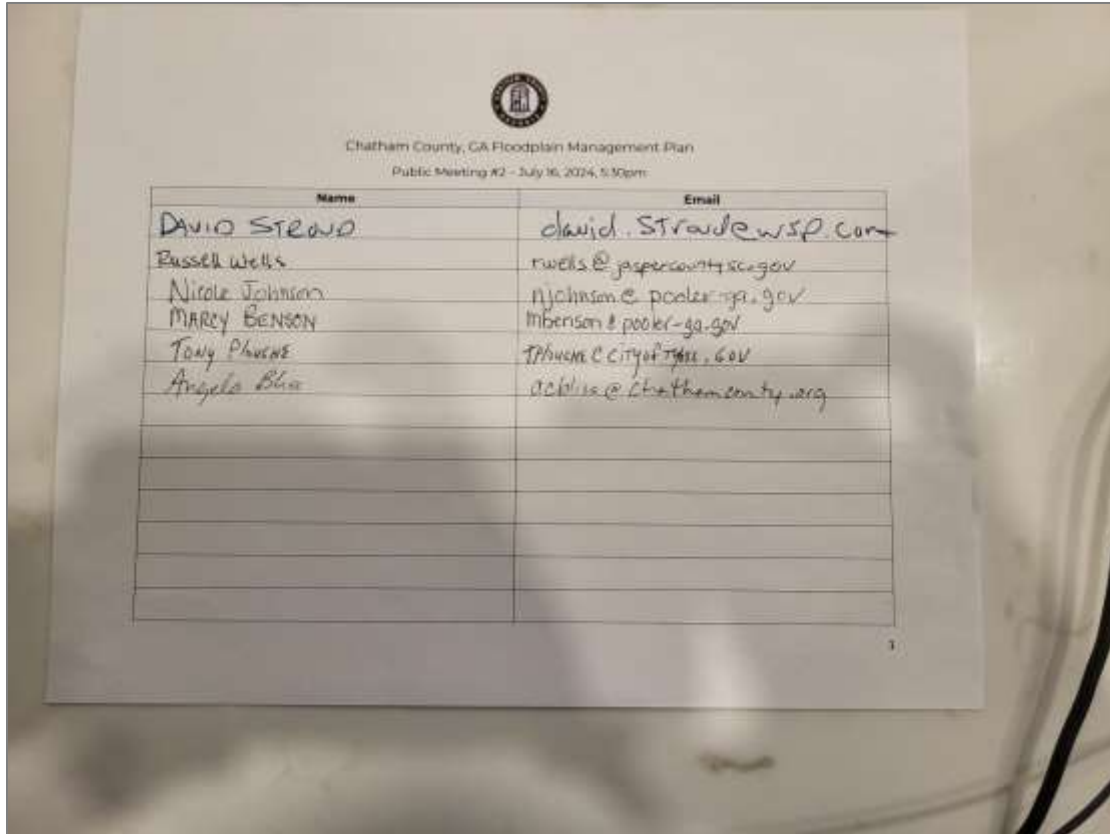 Chatham County, GA Floodplain Management Plan
Public Meeting #2 - July 16, 2024, 5:30pm
Name Email
DAVID STROUD david.stroud@wsp.com
Russell Wells rwells@jaspercountysc.gov
Nicole Johnson njohnson@pooler-ga.gov
MARCY BENSON mbenson@pooler-ga.gov
TONY
Angela acbliss@chathamcounty.org
1